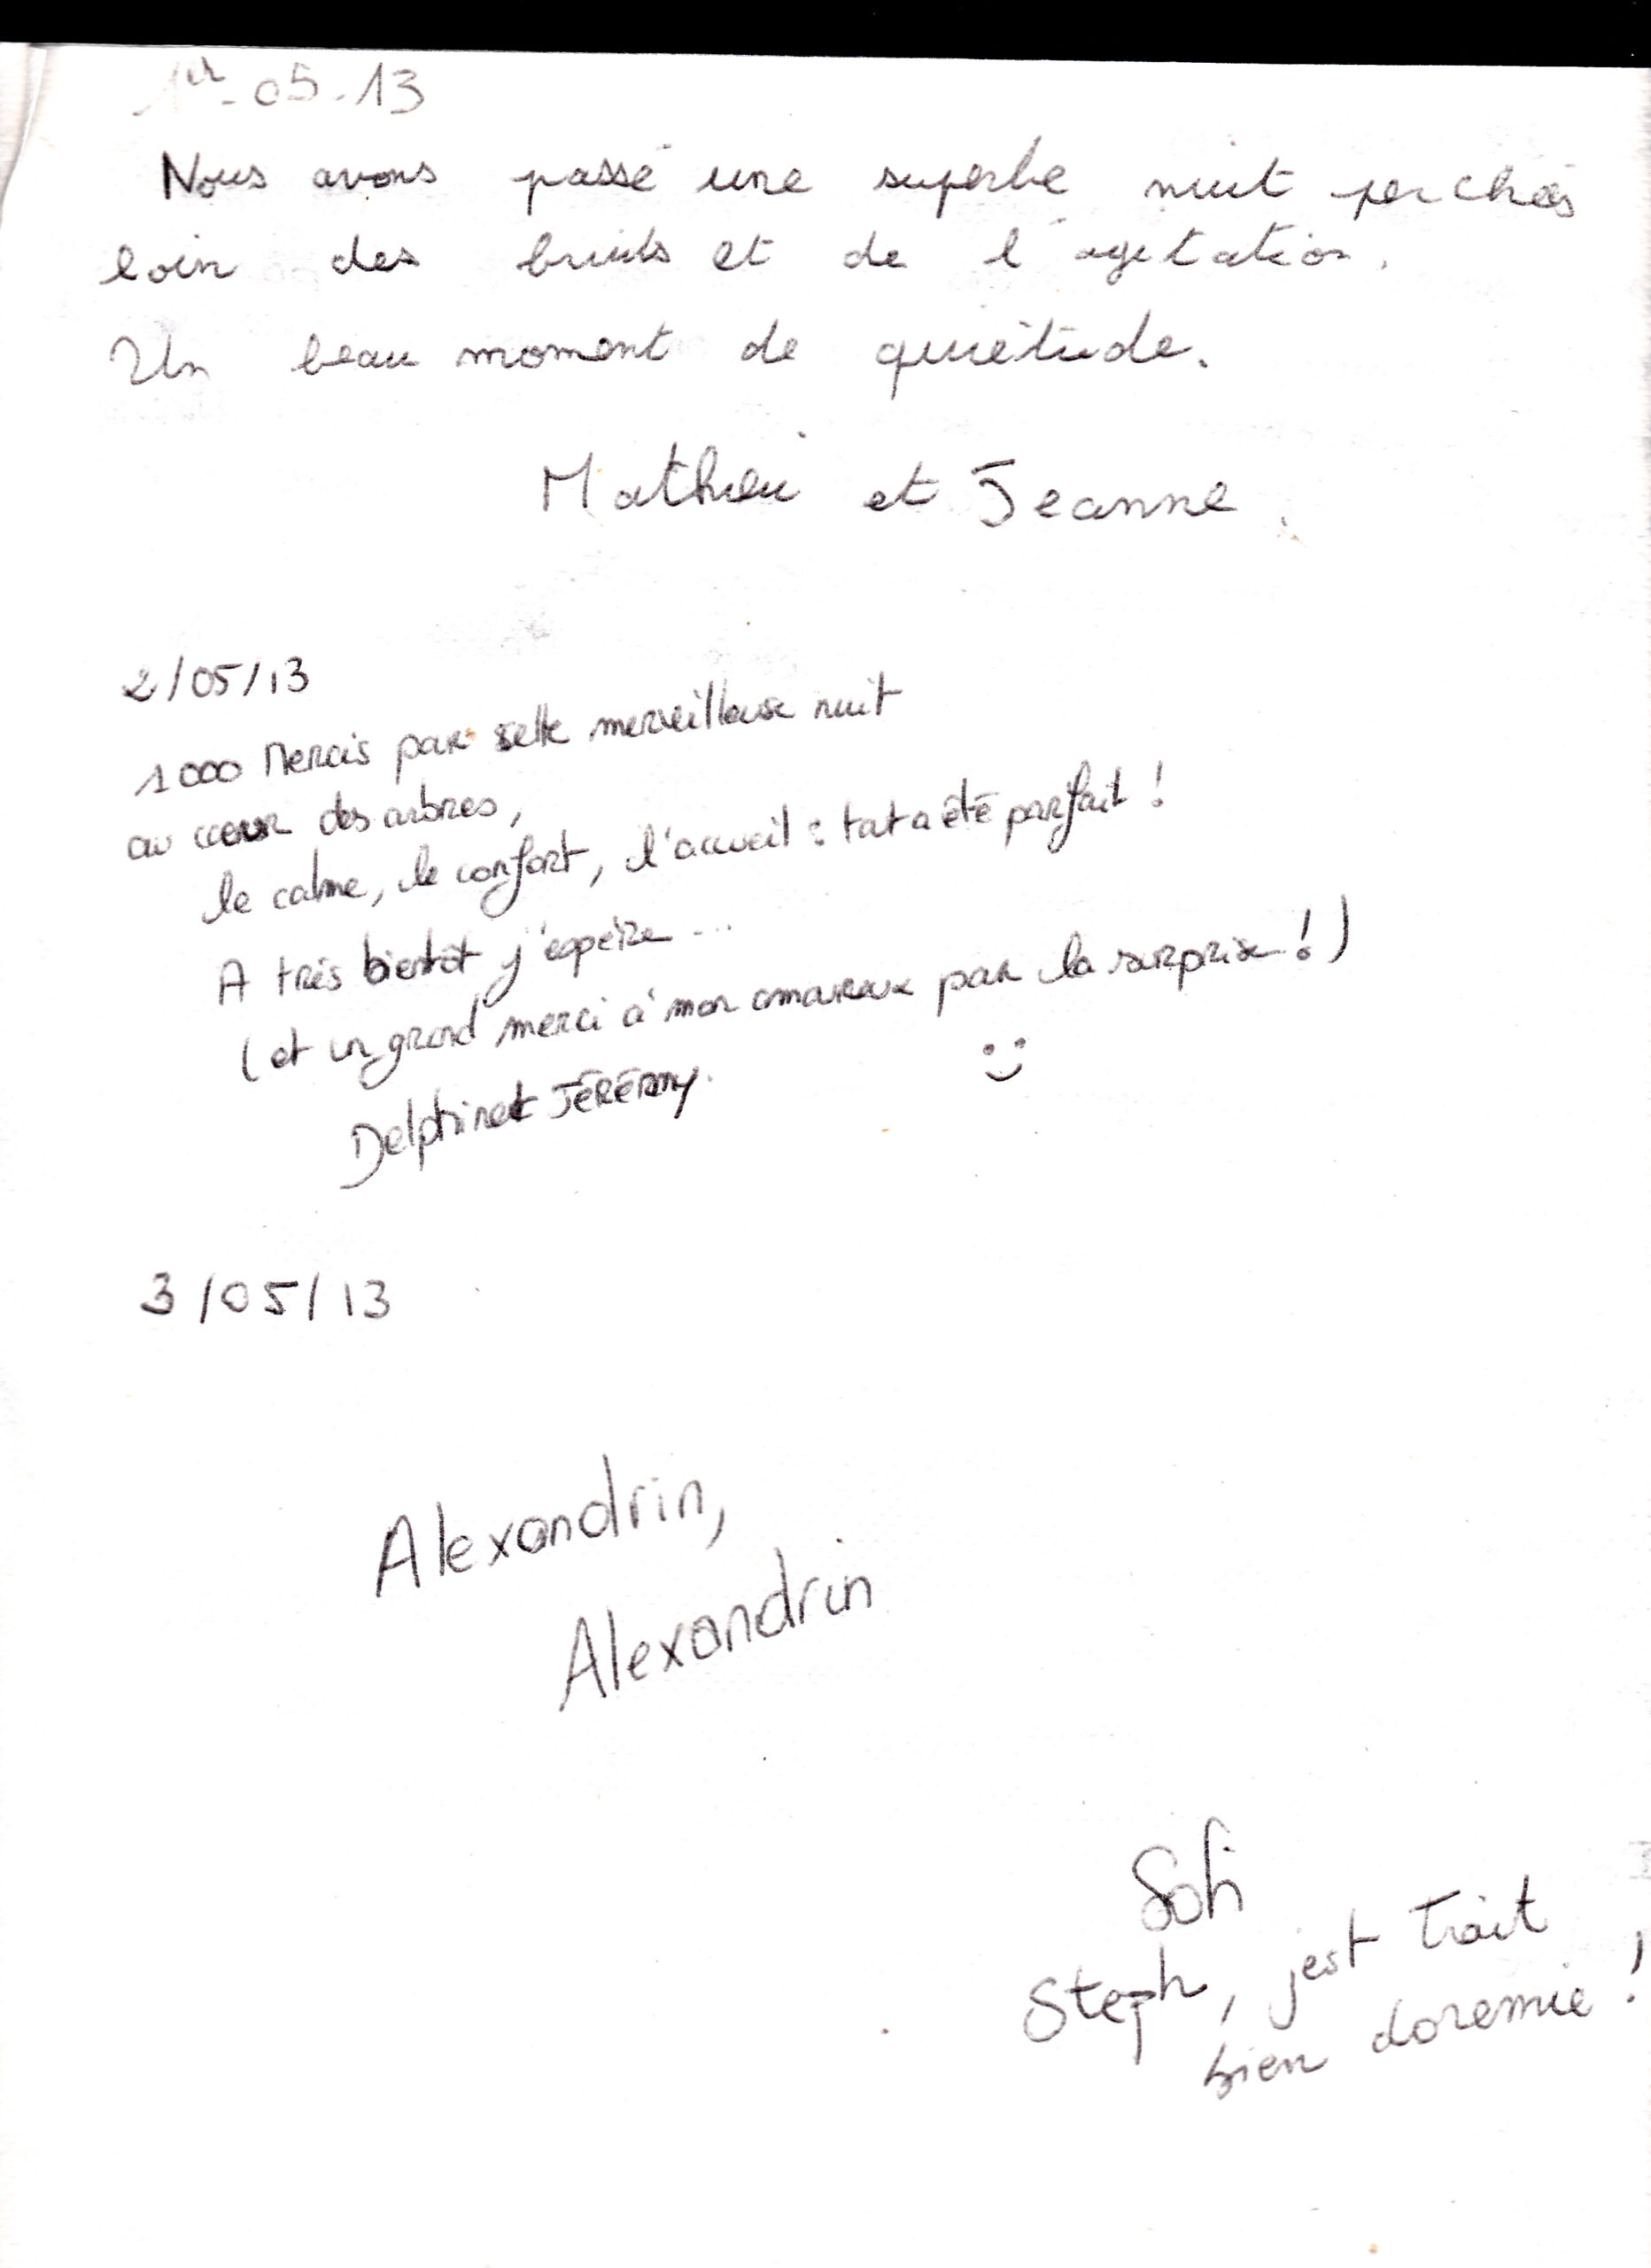 1er - 05 - 13
Nous avons passé une superbe nuit perchés
loin des bruits et de l'agitation.
Un beau moment de quiétude.
Mathieu et Jeanne.
2/05/13
1000 Mercis pour cette merveilleuse nuit
au cœur des arbres,
le calme, le confort, l'accueil : tout a été parfait !
A très bientôt j'espère ...
(et un grand merci à mon amoureux pour la surprise !)
Delphine et JÉRÉMY. :)
3/05/13
Alexandrin,
Alexandrin
Steph, jest trait
bien doremie !